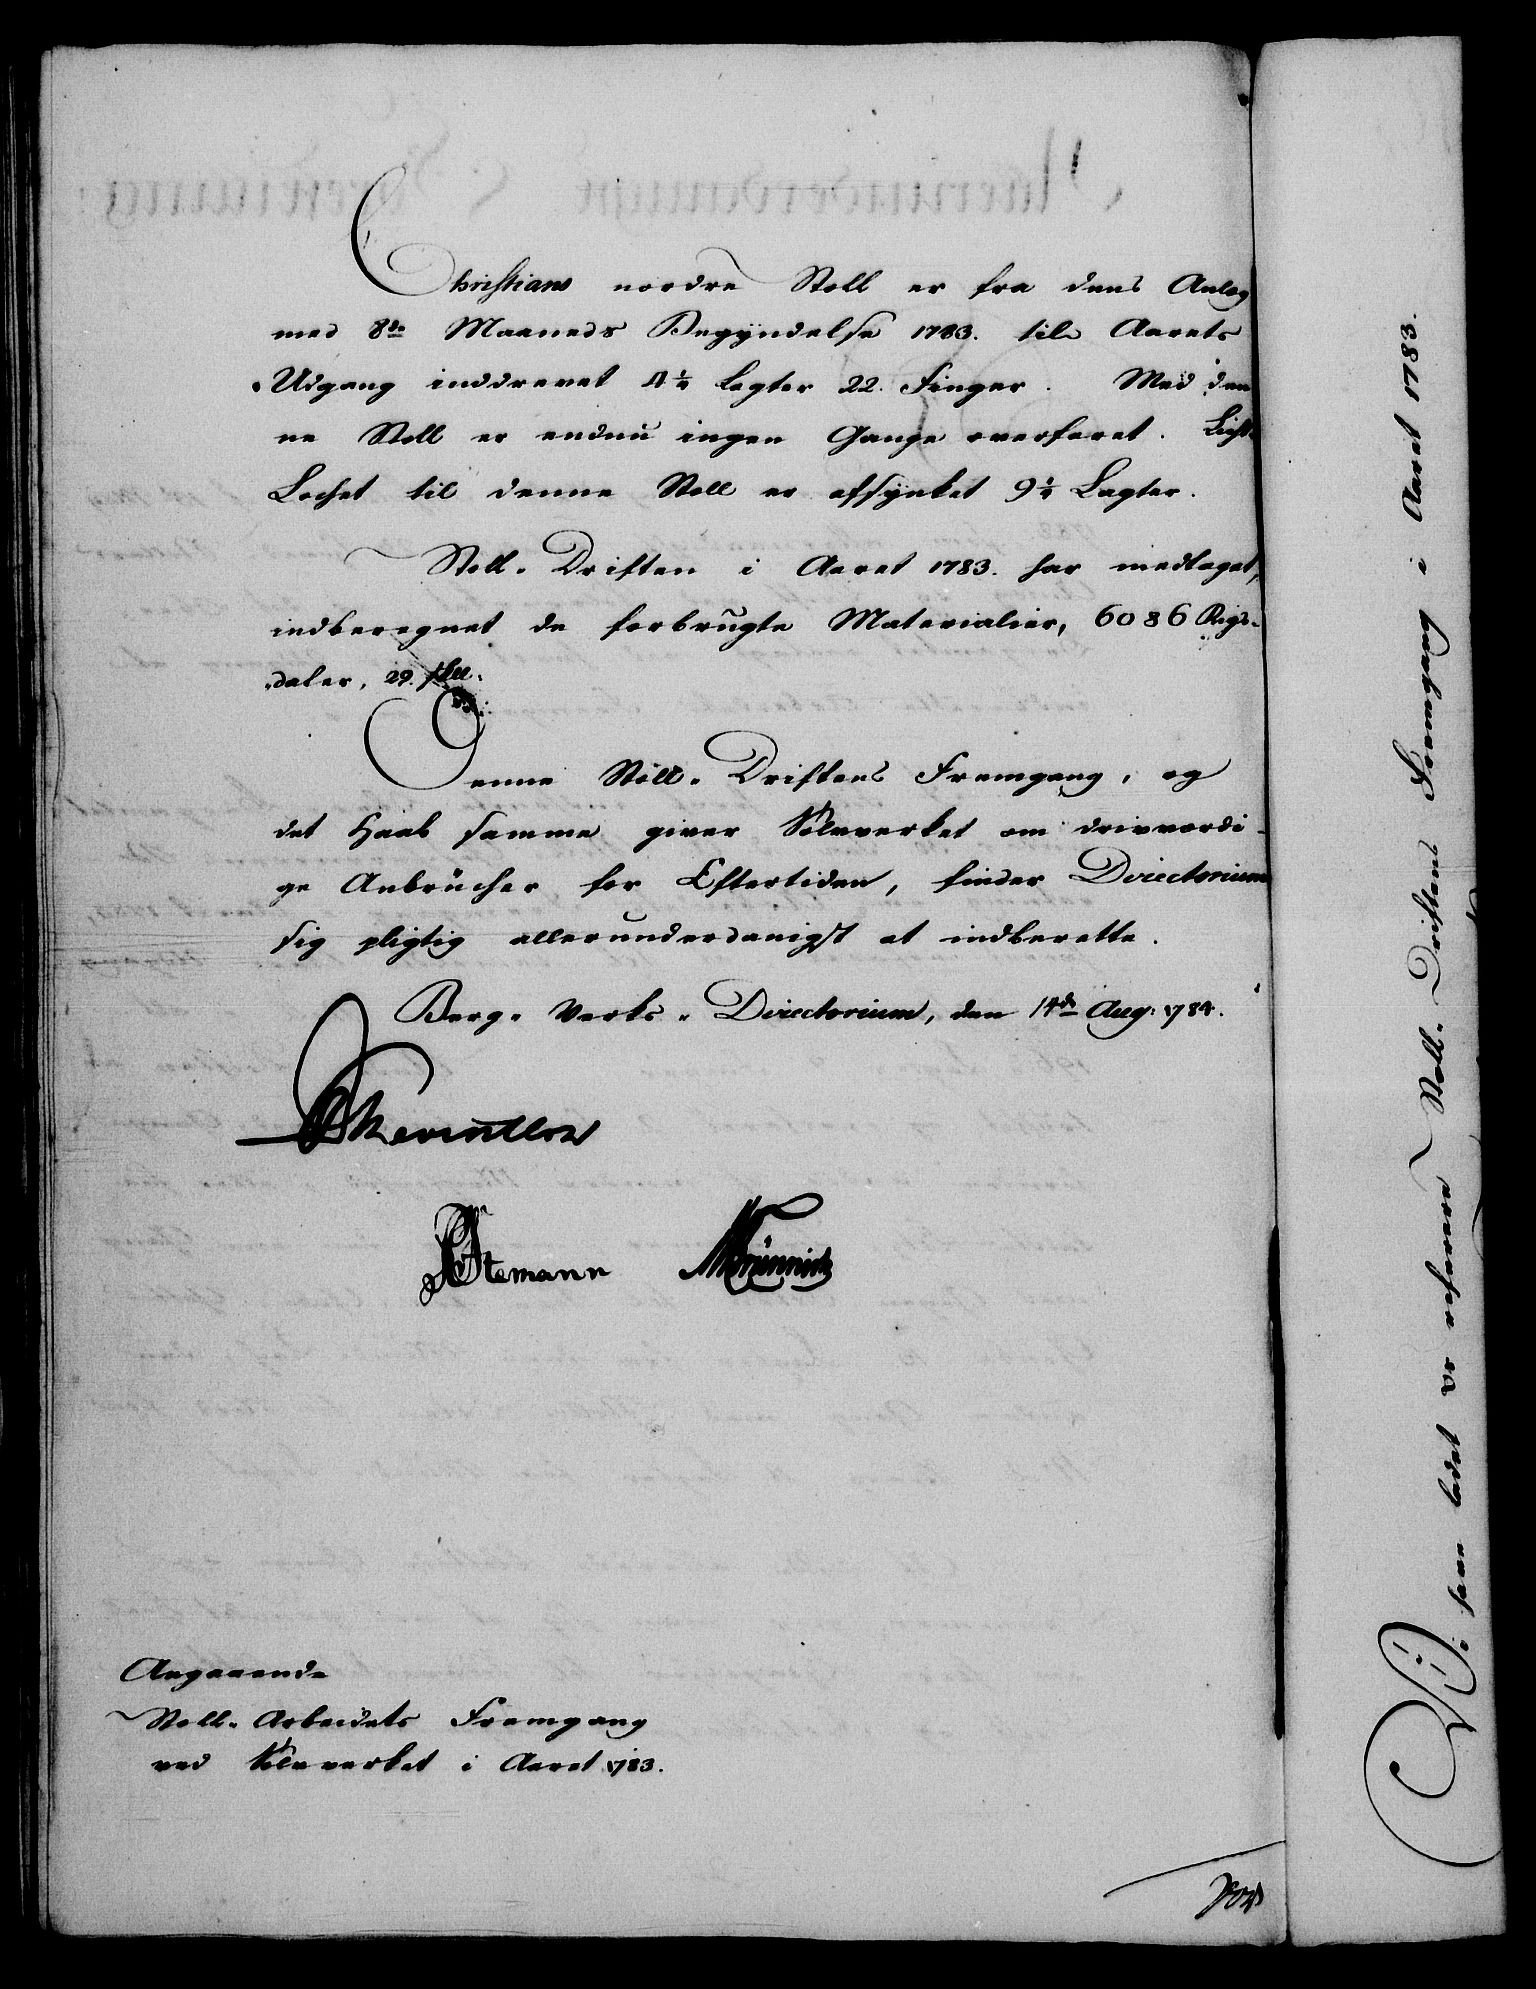 Christians nordre Stoll er fra dens Anlæg
med 8de Maaneds Begÿndelse 1783. til Aarets
Udgang inddrevet 4½ Lagter 22. Finger. Med den
ne Stoll er endnu ingen Gange overfaret. Licht-
Lochet til denne Stoll er afsÿnket 9¼ Lagter.
Stoll-Driften i Aaret 1783. har medtaget,
indberegnet de forbrugte Materialier, 6086 Rigs-
daler, 29. skll.
Denne Stoll-Driftens Fremgang, og
det Haab samme giver Sølvverket om drivværdi-
ge Anbrücher for Eftertiden, finder Directorium
sig pligtig allerunderdanigst at indberette.
Berg-Verks-Directorium, den 14de Aug: 1784.
Reventlow
Stemann MTBrünnich
Angaaende
Stoll-Arbeidets Fremgang
ved Sølvverket i Aaret 1783.
Vi have ladet os referere Stoll-Driftens Fremgang i Aaret 1783.